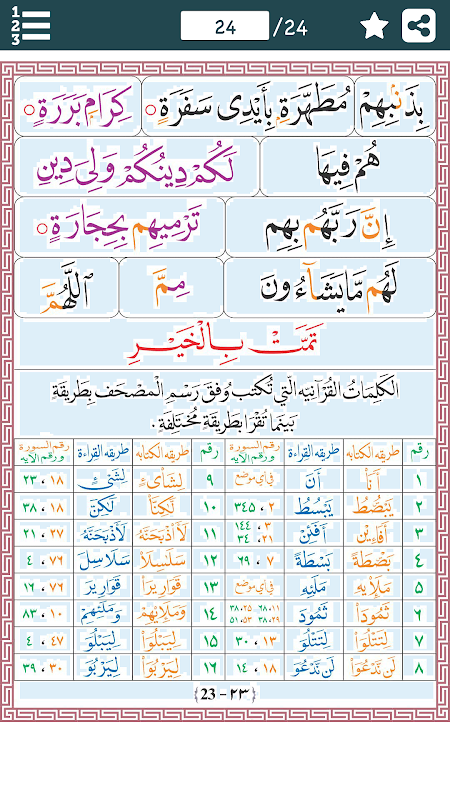 1
2
3
24 /24
بِذَنۢبِهِمْ مُطَهَّرَةٍۭ بِأَيْدِى سَفَرَةٍ كِرَامٍۭ بَرَرَةٍ
هُمْ فِيهَا لَكُمْ دِينُكُمْ وَلِىَ دِينِ
إِنَّ رَبَّهُم بِهِم تَرْمِيهِم بِحِجَارَةٍ
لَهُم مَّايَشَآءُونَ مِمَّ ٱللَّهُمَّ
تَمَّتْ بِالْخَيْرِ
الْكَلِمَاتُ الْقُرْآنِيَه الَّتِي تُكْتَب وُفْقَ رَسْمِ الْمُصْحَف بِطَرِيقَةٍ
بَيْنَمَا تُقْرَا بِطَرِيقَةٍ مُخْتَلِفَة.
رقم طريقه الكتابه طريقه القراءة رقم السورة و رقم الآيه رقم طريقه الكتابه طريقه القراءة رقم السورة و رقم الآيه
١ أَنَا۠ أَنَ في اي موضع ٩ لِشَاىْءٍ لِشَىْءٍ ١٨ ، ٢٣
٢ يَبْصُۜطُ يَبْسُطُ ٢ ، ٢٤٥ ١٠ لَٰكِنَّا۠ لَٰكِنَّ ١٨ ، ٣٨
٣ أَفَإِيْن أَفَئِنْ ٣ ، ١٤٤ ٢١ ، ٣٤ ١١ لَأَاْذْبَحَنَّهُ لَأَذْبَحَنَّهُ ٢٧ ، ٢١
٤ بَصْۜطَةً بَسْطَةً ٧ ، ٦٩ ١٢ سَلَٰسِلَا۠ سَلَاسِلَ ٧٦ ، ٤
٥ مَلَإِيْهِ مَلَئِهِ في اي موضع ١٣ قَوَارِيرَا۠ قَوَارِيرَ ٧٦ ، ١٦
٦ ثَمُودَا۠ ثَمُودَ ١١، ٦٨ ٢٥، ٣٨ ٢٩، ٣٨ ٥٣، ٥١ ١٤ وَمَلَإِيْهِمْ وَمَلَئِهِمْ ١٠ ، ٨٣
٧ لِتَتْلُوَا۟ لِتَتْلُوَ ١٣ ، ٣٠ ١٥ لِيَبْلُوَا۟ لِيَبْلُوَ ٤٧ ، ٤
٨ لَن نَدْعُوَا۟ لَن نَدْعُوَ ١٨ ، ١٤ ١٦ لِيَرْبُوَا۟ لِيَرْبُوَ ٣٠ ، ٣٩
﴿23 - ٢٣﴾